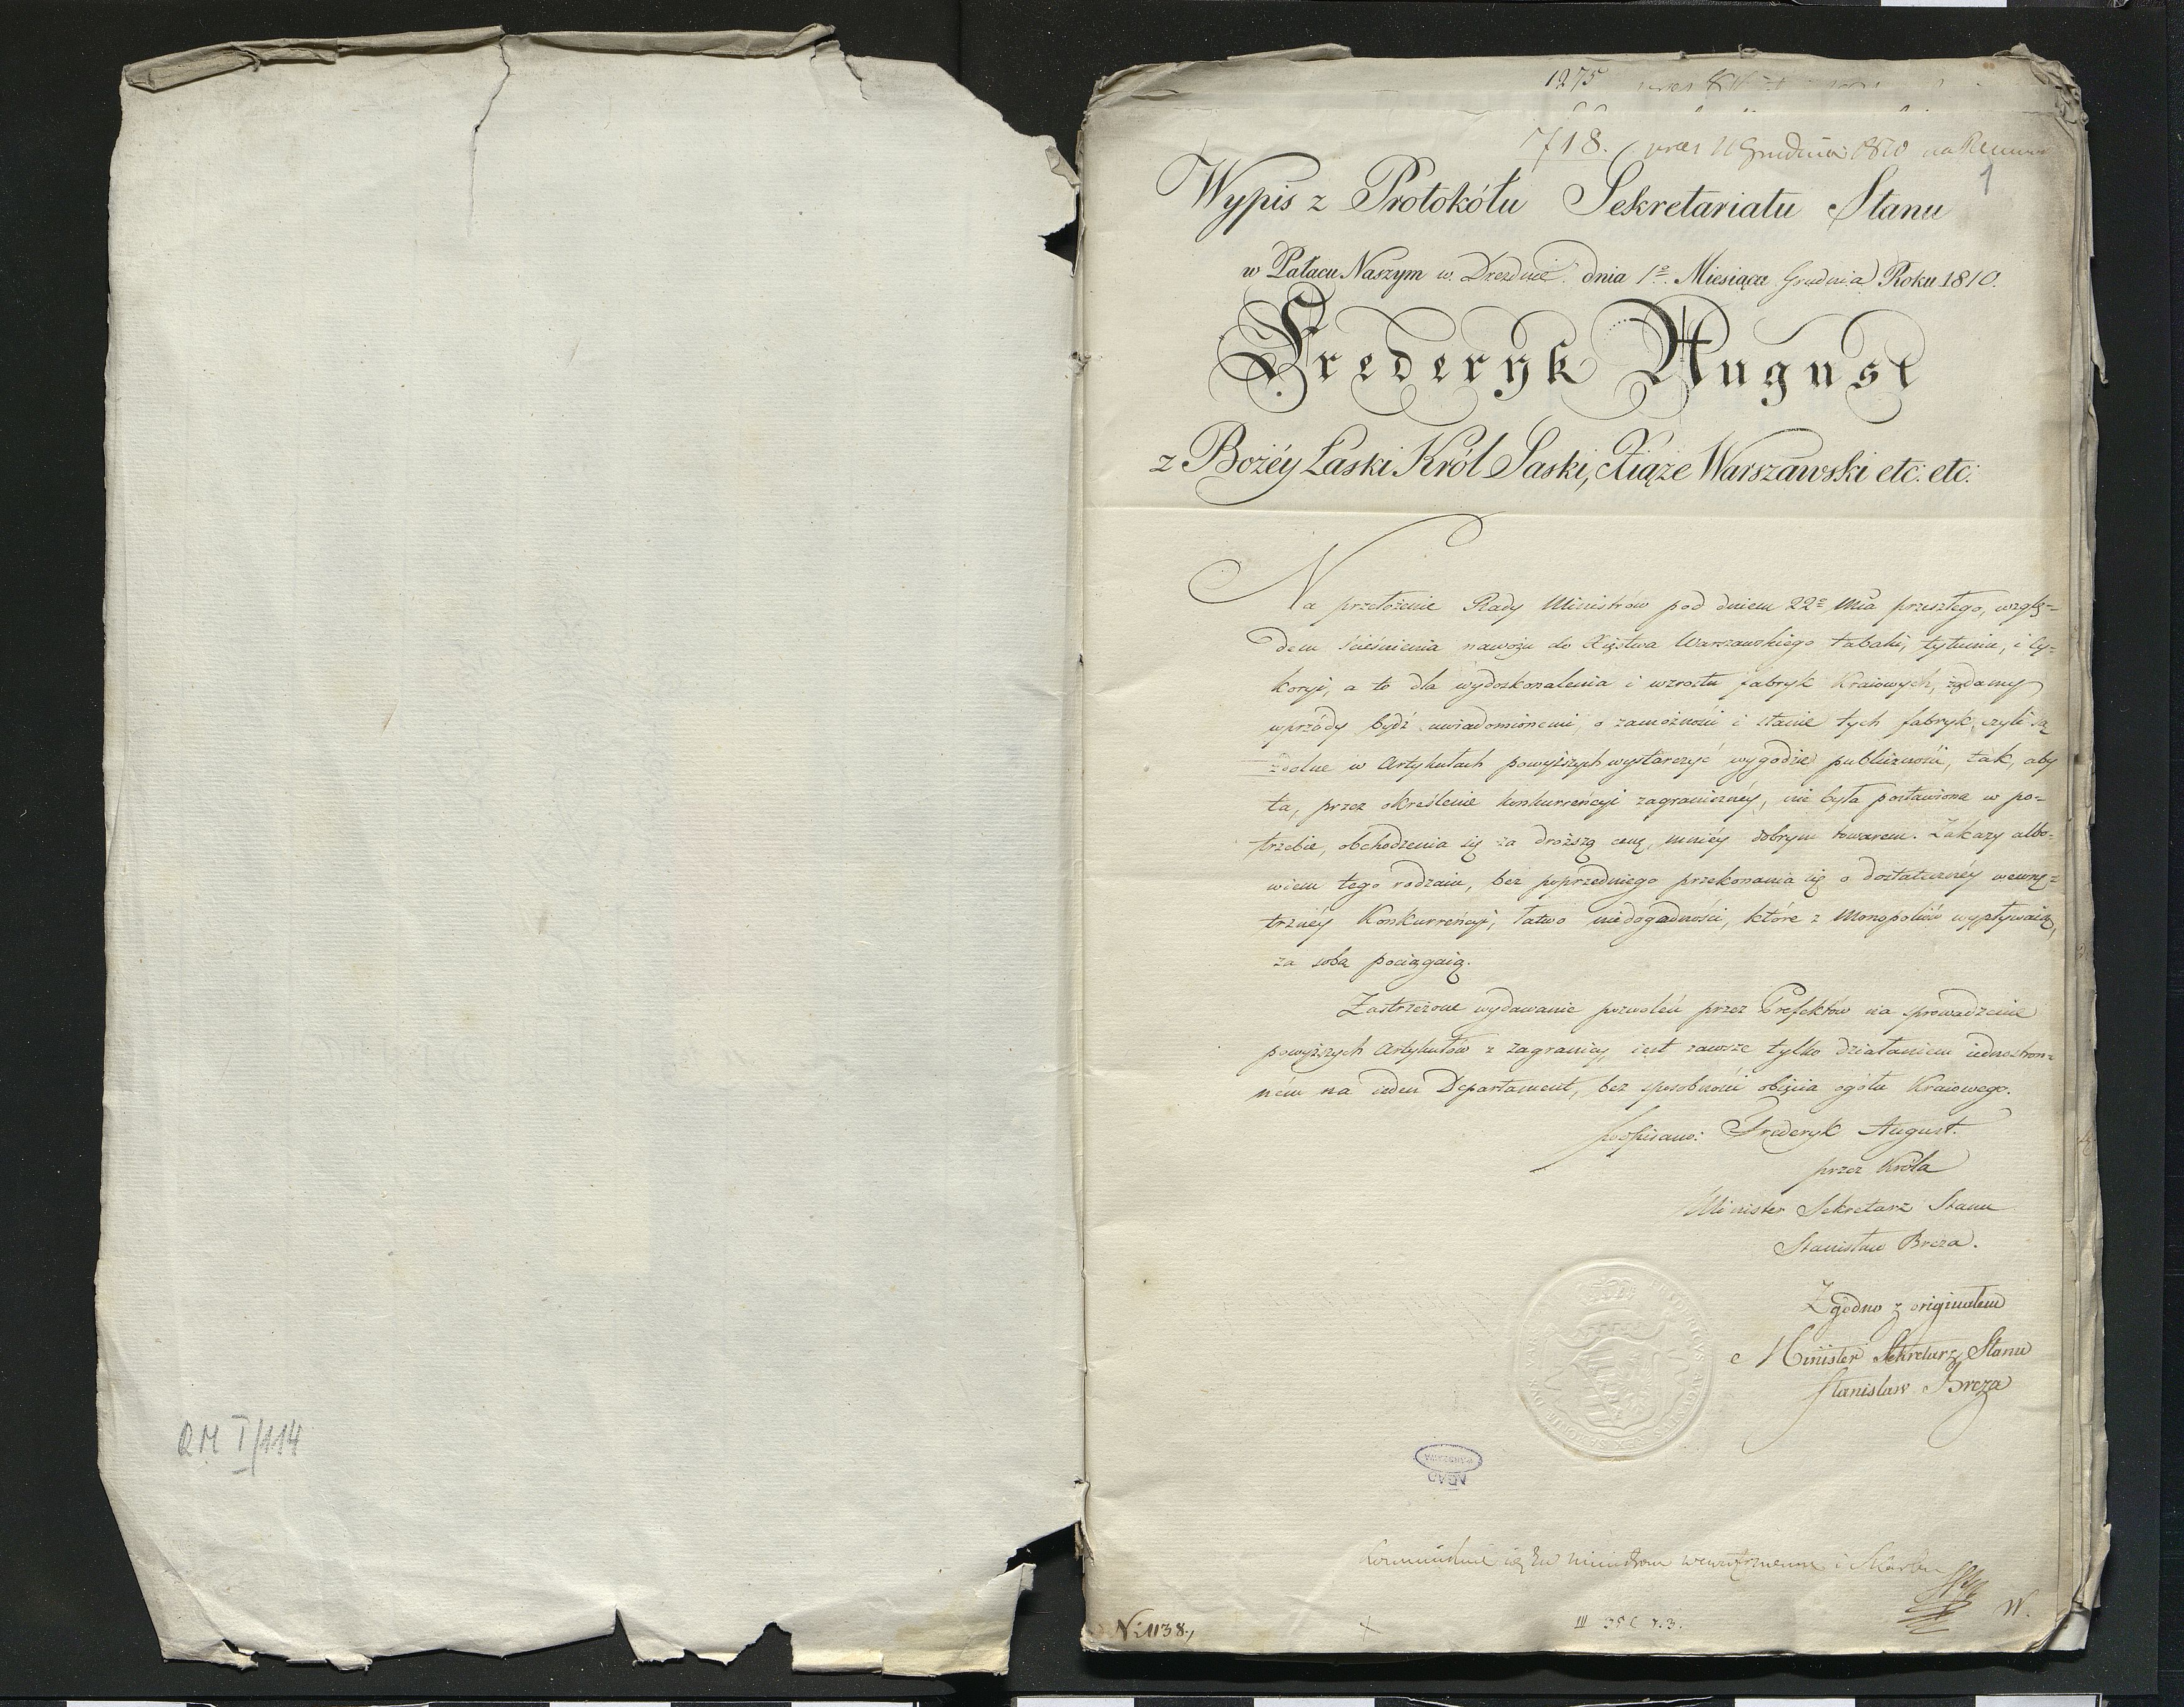 RM I/114
1275
718. pres 11 Grudnia 1810
1
Wypis z Protokółu Sekretariatu Stanu
w Pałacu Naszym w Dreźnie dnia 1º Miesiąca Grudnia Roku 1810.
Frederyk August
z Bożéy Łaski Król Saski, Xiąże Warszawski etc: etc:
Na przełożenie Rady Ministrów pod dniem 22º Mca przeszłego, wzglę=
dem ścieśnienia nawozu do Xięstwa Warszawskiego tabaki, tytuniu, i Cy=
koryi, a to dla wydoskonalenia i wzrostu fabryk Kraiowych, żądamy
wprzódy bydź uwiadomionemi, o zamożności i stanie tych fabryk, czyli są
zdolne w Artykułach powyższych wystarczyć wygodzie publiczności, tak, aby
ta, przez określenie konkurrencyi zagraniczney, nie była postawiona w po=
trzebie, obchodzenia się za droższą cenę, mniéy dobrym towarem. Zakazy albo=
wiem tego rodzaiu, bez poprzedniego przekonania się o dostateczney wewnę=
trznéy Konkurrencyi, łatwo niedogodności, które z Monopoliów wypływaią,
za sobą pociągaią.
Zastrzeżone wydawanie pozwoleń przez Prefektów na sprowadzenie
powyższych Artykułów z zagranicy, iest zawsze tylko działaniem iednostron=
ném na ieden Departament, bez sposobności obięcia ogółu Kraiowego.
podpisano: Frederyk August.
przez Króla
Minister Sekretarz Stanu
Stanisław Breza.
Zgodno z originałem
Minister Sekretarz Stanu
Stanisław Breza
AGAD
WARSZAWA
ministrom i Skarbu
W.
N: 1138.,
III 35 C v. 3.